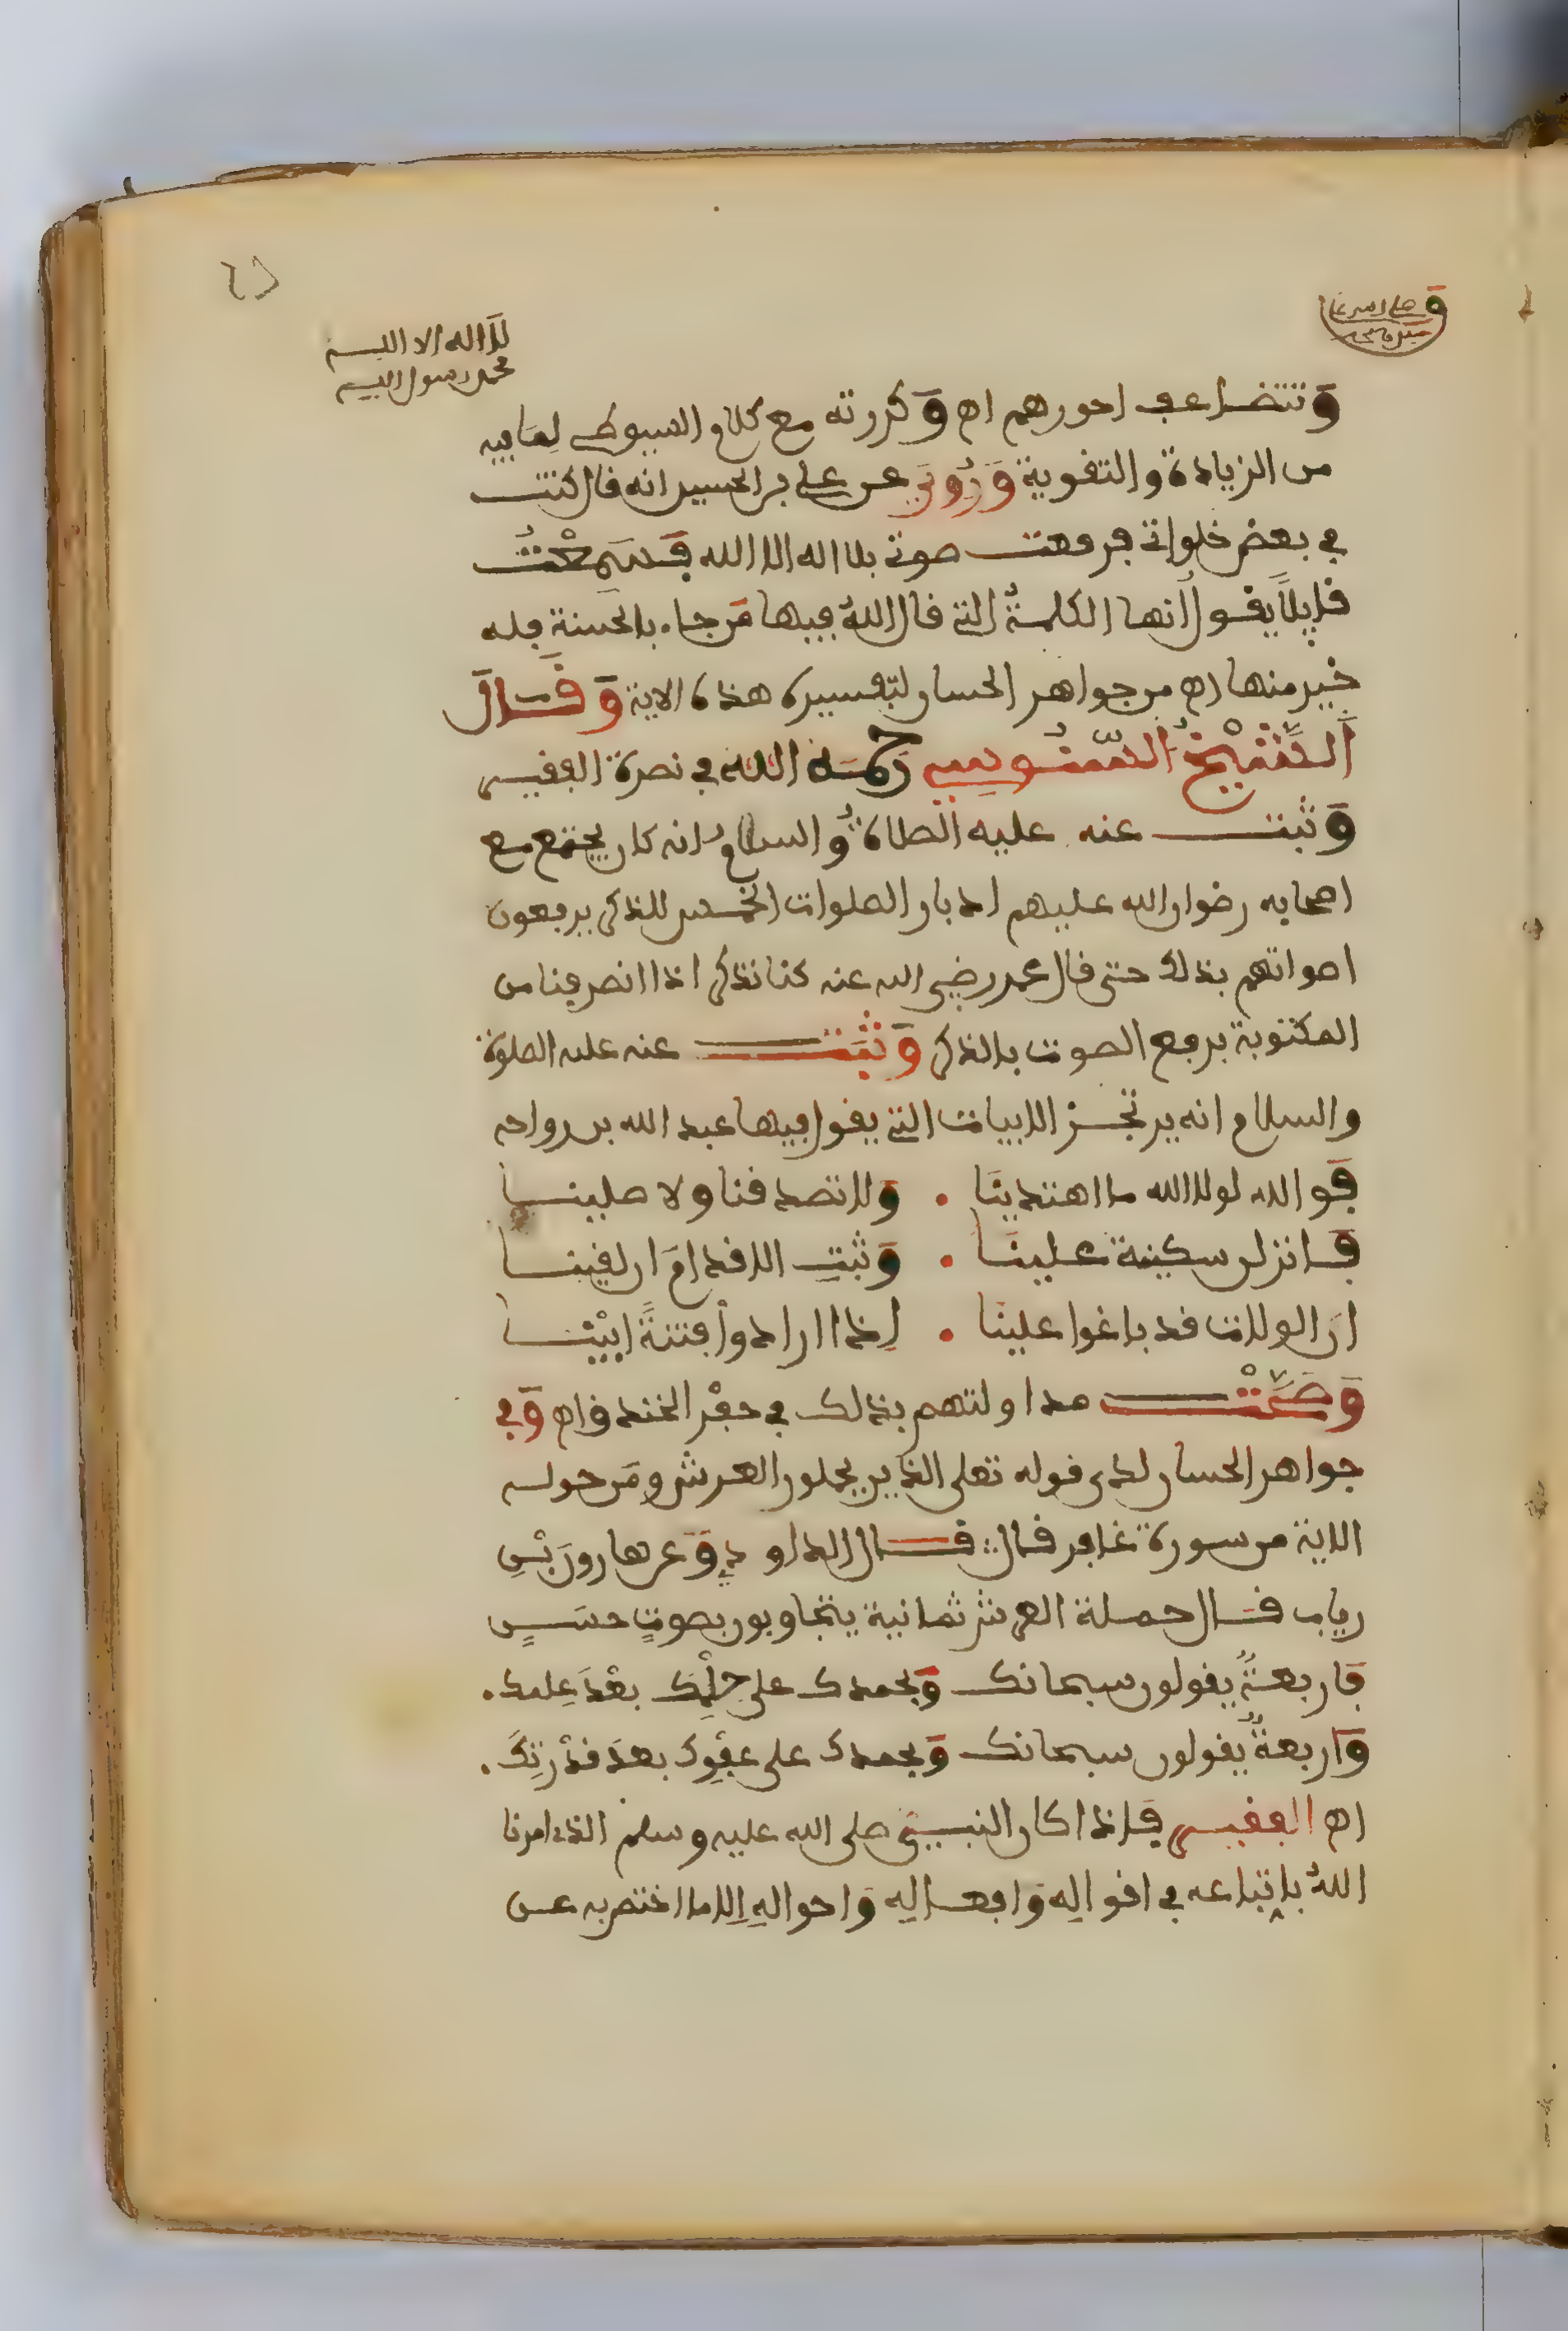 لا اله الا الله
محمد رسول الله
وتتضاعف اجورهم اه وكررته مع كلام السيوطي لما فيه
من الزيادة والتقوية وَرُوِيَ عن علي بن الحسين انه قال كنت
في بعض خلواتي فرفعت صوتي بلا اله الا الله فَسَمِعْتُ
قايلاً يقول أنها الكلمةُ التي قال اللهُ فيها مَن جاء بالحسنة فله
خير منها اه من جواهر الحسان لتفسيره هذه الاية وَقَالَ
اَلشَّيْخُ السَّنُوسِي رَحِمَهُ الله في نصرة الفقيـر
وَثبت عنه عليه الصلاةُ والسلامُ انه كان يجتمع مع
اصحابه رضوان الله عليهم ادبار الصلوات الخمس للذكر يرفعون
اصواتهم بذلك حتى قال عمر رضي الله عنه كنا نذكر اذا انصرفنا من
المكتوبة برفع الصوت بالذكر وَثَبَتَ عنه عليه الصلوة
والسلام انه يرتجـز الابيات التي يقول فيها عبد الله بن رواحه
فَوالله لولا الله ما اهتدينَا . وَلا تصدقنا ولا صلينــا
فَانزلن سكينة علينَا . وَثبتِ الاقدامَ ان لقينــا
انَ الولات قد باغوا علينا . اِذا ارادوا فتنةً ابَيْنــا
وَصَحَّتْ مداولتهم بذلك في حفْر الخندق اه وَفي
جواهر الحسان لدى قوله تعلى الذين يحملون العرش ومَن حوله
الاية من سورة غافر قال قــال الداودي وَعن هارونَ بْنِ
رياب قــال حملة العرش ثمانية يتجاوبون بصوتٍ حسَــنٍ
فَاربعـةٌ يقولون سبحانك وَبحمدك على حِلْمِك بعْدَ عِلمك .
وَاربعةٌ يقولون سبحانك وَبحمدك على عفْوِك بعدَ قدْرتِكَ .
اه الفقيـر فَاذا كان النبـيّ صلى الله عليه وسلم الذى امرنا
اللهُ باتباعه في اقوالِه وَافعــالِه وَاحوالِه اِلا ما اختص به عــن